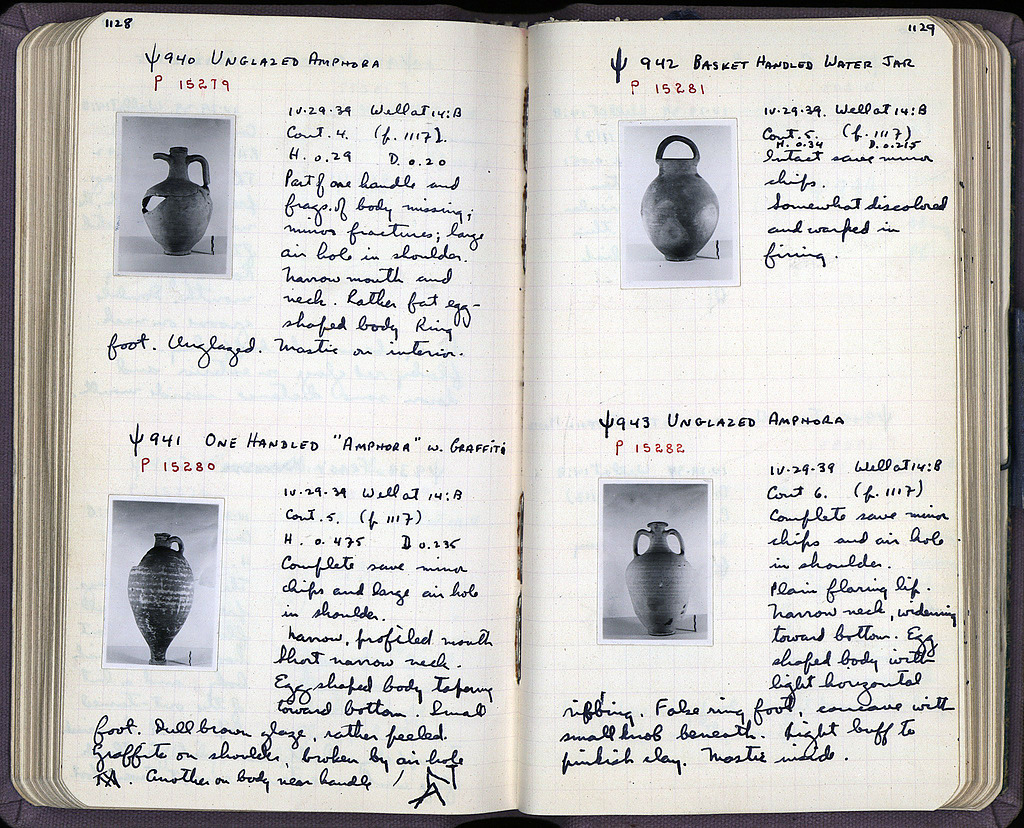 1128
ψ 940 UNGLAZED AMPHORA
P 15279
IV-29-39 Well at 14:B
Cont. 4. (p. 1117).
H. 0.29 D. 0.20
Part of one handle and
frags. of body missing;
minor fractures; large
air hole in shoulder.
Narrow mouth and
neck. Rather fat egg-
shaped body Ring
foot. Unglazed. Mastic on interior.
ψ 941 ONE HANDLED "AMPHORA" W. GRAFFITI
P 15280
IV-29-39 Well at 14:B
Cont. 5. (p. 1117)
H. 0.475 D 0.235
Complete save minor
chips and large air hole
in shoulder.
Narrow, profiled mouth
Short narrow neck.
Egg shaped body tapering
toward bottom. Small
foot. Dull brown glaze, rather peeled.
Graffito on shoulder, broken by air hole
Another on body near handle
1129
ψ 942 BASKET HANDLED WATER JAR
P 15281
IV-29-39. Well at 14:B
Cont. 5. (p. 1117)
H. 0.34 D. 0.215
Intact save minor
chips.
Somewhat discolored
and warped in
firing.
ψ 943 UNGLAZED AMPHORA
P 15282
IV-29-39 Well at 14:B
Cont 6. (p. 1117)
Complete save minor
chips and air hole
in shoulder.
Plain flaring lip.
Narrow neck, widening
toward bottom. Egg
shaped body with
light horizontal
ribbing. False ring foot, concave with
small knob beneath. Light buff to
pinkish clay. Mastic inside.